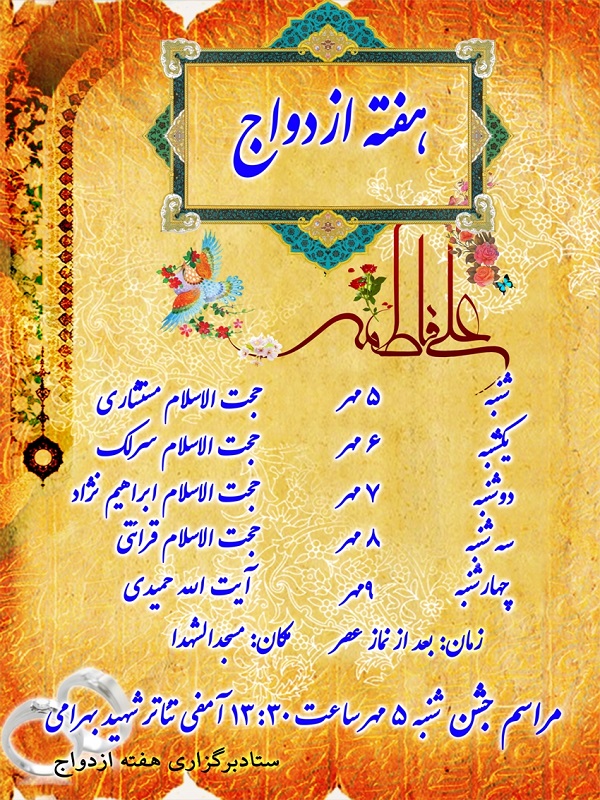 هفته ازدواج
علی فاطمه
شنبه ۵ مهر حجت الاسلام مستشاری
یکشنبه ۶ مهر حجت الاسلام سرلک
دوشنبه ۷ مهر حجت الاسلام ابراهیم نژاد
سه شنبه ۸ مهر حجت الاسلام قرائتی
چهارشنبه ۹مهر آیت الله حمیدی
زمان: بعد از نماز عصر مکان: مسجدالشهدا
مراسم جشن شنبه ۵ مهر ساعت ۱۳:۳۰ آمفی تئاتر شهید بهرامی
ستادبرگزاری هفته ازدواج